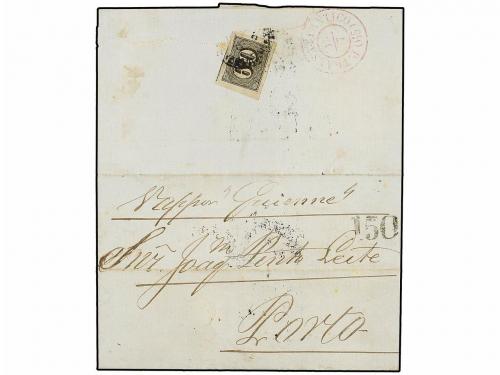 60
Vappor "Guienne"
150
Snr. Joaqm Pinto Leite
Porto